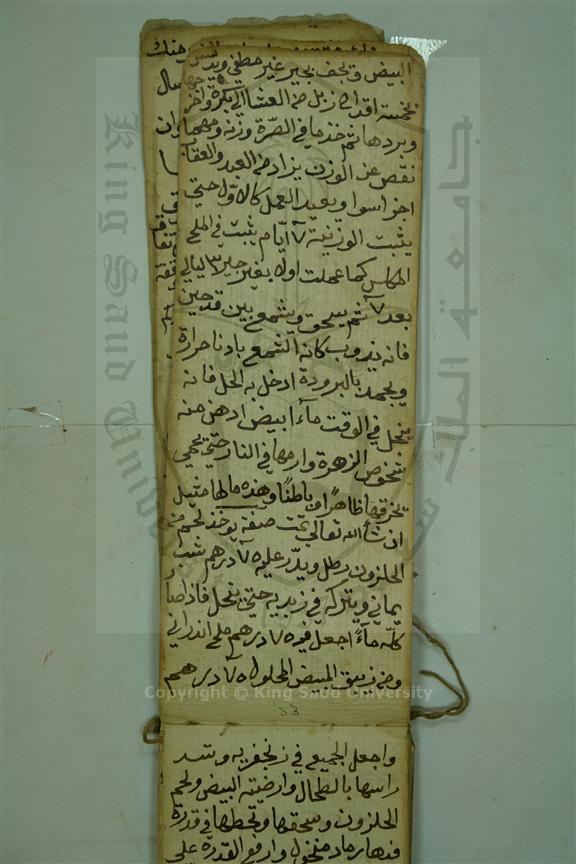 البيض ويجف بجير غير مطفي ويدفن
نخمسة اقداح زبل من العشا الي بكرة واخر
وبردها ثم خذ ما في الصّرة وزنه ومهما
نقص عن الوزن يزاد من العبد والعقاب
اجزا سوا ويعيد العمل كالاوّل حتي
يثبت الوزنية ٧ ايّام يثبت في الملح
المكلس كما عملت اولا بغير جير ٣ ليالي
بعد ٧ ثم يسحق ويشمع بين قدحين
فانه يذوب كانه الشمع بادنا حرارة
ويجمد بالبرودة ادخل به الحل فانه
ينحل في الوقت ماء ابيض ادهن منه
شخوص الزهرة وارمها في النار حتي تحمي
تخرقها ظاهرا وباطنًا وهذه مالها مثيل
ان شاء الله تعالي تمت صفة يوخذ لحم
الحلزون رطل ويذر عليه ٧٥ درهم شب
يماني ويتركه في زبديه حتي ينحل فاذا صار
كلّه ماءً اجعل فيه ٧٥ درهم ملح اندراني
ومن زيبق المبيض المحلول ٧٥ درهم
Copyright © King Saud University
23
واجعل الجميع في زنجفريه وشد
راسها بالطحال وارضيته البيض ولحم
الحلزون وسحقها وتحطها في قدرة
فيها رماد منخول وارفع القدرة علي
King Saud University
جامعة الملك سعود